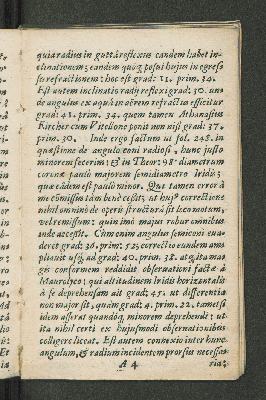 quia radius in guttâ reflexus eandem habet in-
clinationem; eandem quoq; posui hujus in egres-
su refractionem: hoc est grad: 11. prim. 34.
Est autem inclinatio radij reflexi grad: 30. un-
de angulus ex aquâ in aërem refractus efficitur
grad: 41. prim. 34. quem tamen Athanasius
Kircher cum Vitellone ponit non nisi grad: 37.
prim. 30. Inde ergo factum ut fol. 245. in
quæstione de angulo coni radiosi, hunc justo
minorem fecerim: & in Theor: 98. diametrum
coronæ paulò majorem semidiametro Iridis:
quæ eadem est paulò minor. Qui tamen error à
me commissus tàm benè cessit, ut hujus correctione
nihil omninò de operis structurâ sit luxatum,
vel remissum: quin imò major robur omnibus
inde accessit. Cùm enim angulus semiconi eua-
deret grad: 36. prim: 52. correctio eundem am-
pliavit usq; ad grad: 40. prim. 38. atq; ita ma-
gis conformem reddidit observationi factæ à
Maurolyco; qui altitudinem Iridis horizontalis
à se deprehensam ait grad: 45. ut differentia
non major sit, quàm grad: 4. prim. 22. tametsi
idem asserat quandoq; minorem deprehendi: ut
ita nihil certi ex hujusmodi observationibus
colligere liceat. Est autem connexio inter hunc
angulum, & radium incidentem prorsus necessa-
A 4 ria;